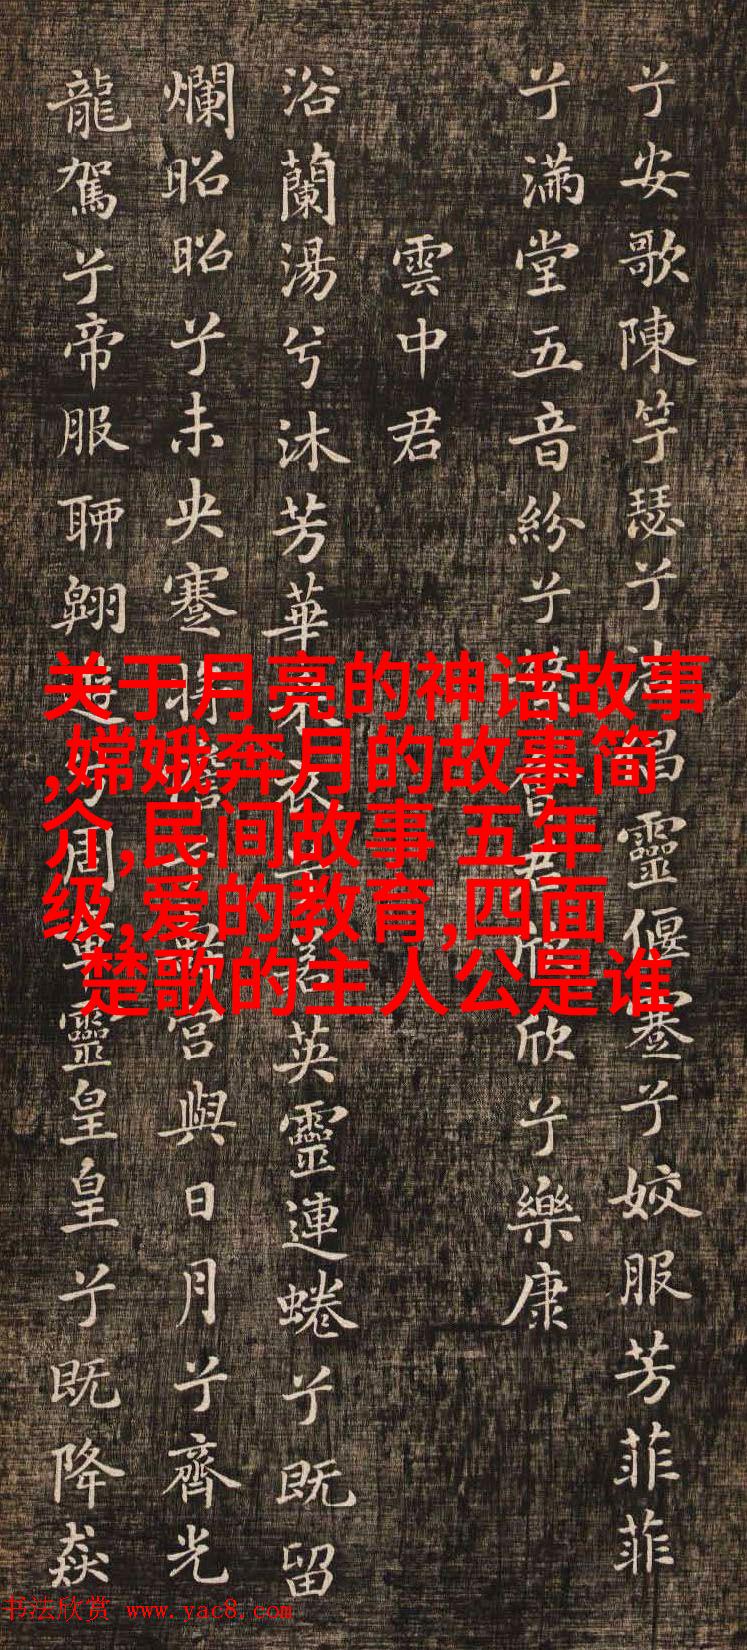 兮安歌陳竽瑟兮浩倡靈偃蹇兮姣服芳菲菲
兮滿堂五音紛兮繁會君欣欣兮樂康
雲中君
浴蘭湯兮沐芳華采衣兮若英靈連蜷兮既留
爛昭昭兮未央蹇將憺兮壽宮與日月兮齊光
龍駕兮帝服聊翱遊兮周章靈皇皇兮既降猋
关于月亮的神话故事
,嫦娥奔月的故事简
介,民间故事 五年
级,爱的教育,四面
楚歌的主人公是谁
书法欣赏 www.yac8.com